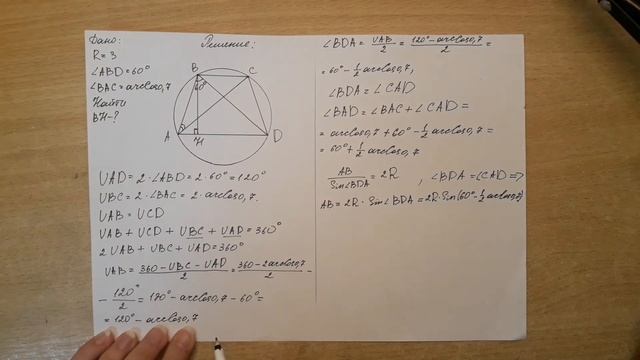 Дано:
R = 3
∠ABD = 60°
∠BAC = arccos 0,7
Найти
BH - ?
Решение:
B
C
60°
A
H
D
∪AD = 2·∠ABD = 2·60° = 120°
∪BC = 2·∠BAC = 2·arccos 0,7.
∪AB = ∪CD
∪AB + ∪CD + ∪BC + ∪AD = 360°
2∪AB + ∪BC + ∪AD = 360°
∪AB = (360 - ∪BC - ∪AD)/2 = (360 - 2arccos 0,7)/2 -
- 120°/2 = 180° - arccos 0,7 - 60° =
= 120° - arccos 0,7
∠BDA = ∪AB/2 = (120° - arccos 0,7)/2 =
= 60° - 1/2 arccos 0,7,
∠BDA = ∠CAD
∠BAD = ∠BAC + ∠CAD =
= arccos 0,7 + 60° - 1/2 arccos 0,7 =
= 60° + 1/2 arccos 0,7
AB/Sin∠BDA = 2R , ∠BDA = ∠CAD =>
AB = 2R · Sin∠BDA = 2R·Sin(60° - 1/2 arccos 0,7)